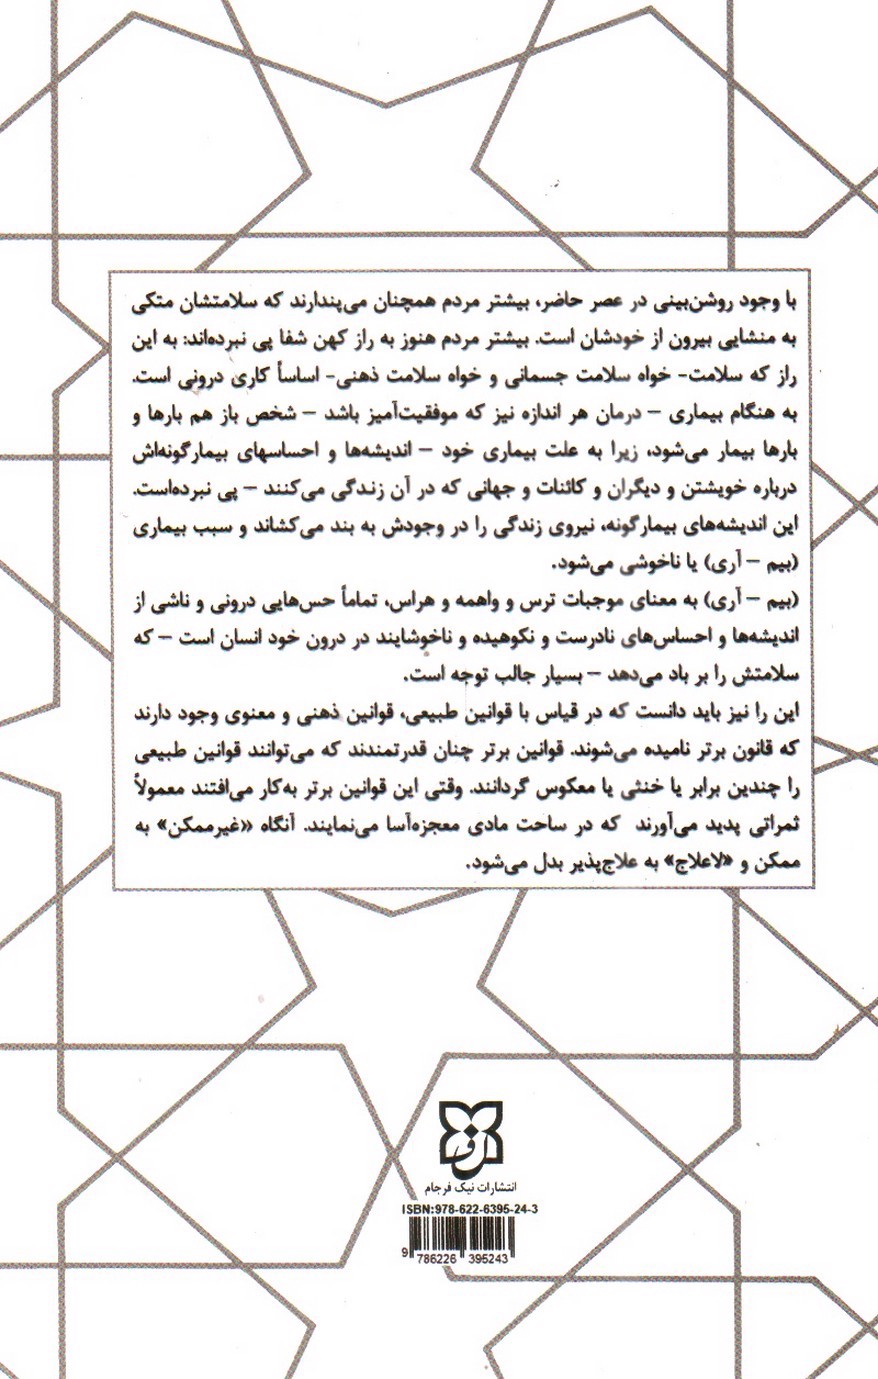 با وجود روشن‌بینی در عصر حاضر، بیشتر مردم همچنان می‌پندارند که سلامتشان متکی
به منشایی بیرون از خودشان است. بیشتر مردم هنوز به راز کهن شفا پی نبرده‌اند: به این
راز که سلامت- خواه سلامت جسمانی و خواه سلامت ذهنی- اساساً کاری درونی است.
به هنگام بیماری – درمان هر اندازه نیز که موفقیت‌آمیز باشد – شخص باز هم بارها و
بارها بیمار می‌شود، زیرا به علت بیماری خود – اندیشه‌ها و احساسهای بیمارگونه‌اش
درباره خویشتن و دیگران و کائنات و جهانی که در آن زندگی می‌کنند – پی نبرده‌است.
این اندیشه‌های بیمارگونه، نیروی زندگی را در وجودش به بند می‌کشاند و سبب بیماری
(بیم – آری) یا ناخوشی می‌شود.
(بیم – آری) به معنای موجبات ترس و واهمه و هراس، تماماً حس‌هایی درونی و ناشی از
اندیشه‌ها و احساس‌های نادرست و نکوهیده و ناخوشایند در درون خود انسان است – که
سلامتش را بر باد می‌دهد – بسیار جالب توجه است.
این را نیز باید دانست که در قیاس با قوانین طبیعی، قوانین ذهنی و معنوی وجود دارند
که قانون برتر نامیده می‌شوند. قوانین برتر چنان قدرتمندند که می‌توانند قوانین طبیعی
را چندین برابر یا خنثی یا معکوس گردانند. وقتی این قوانین برتر به‌کار می‌افتند معمولاً
ثمراتی پدید می‌آورند که در ساحت مادی معجزه‌آسا می‌نمایند. آنگاه «غیرممکن» به
ممکن و «لاعلاج» به علاج‌پذیر بدل می‌شود.
انتشارات نیک فرجام
ISBN:978-622-6395-24-3
9 786226 395243